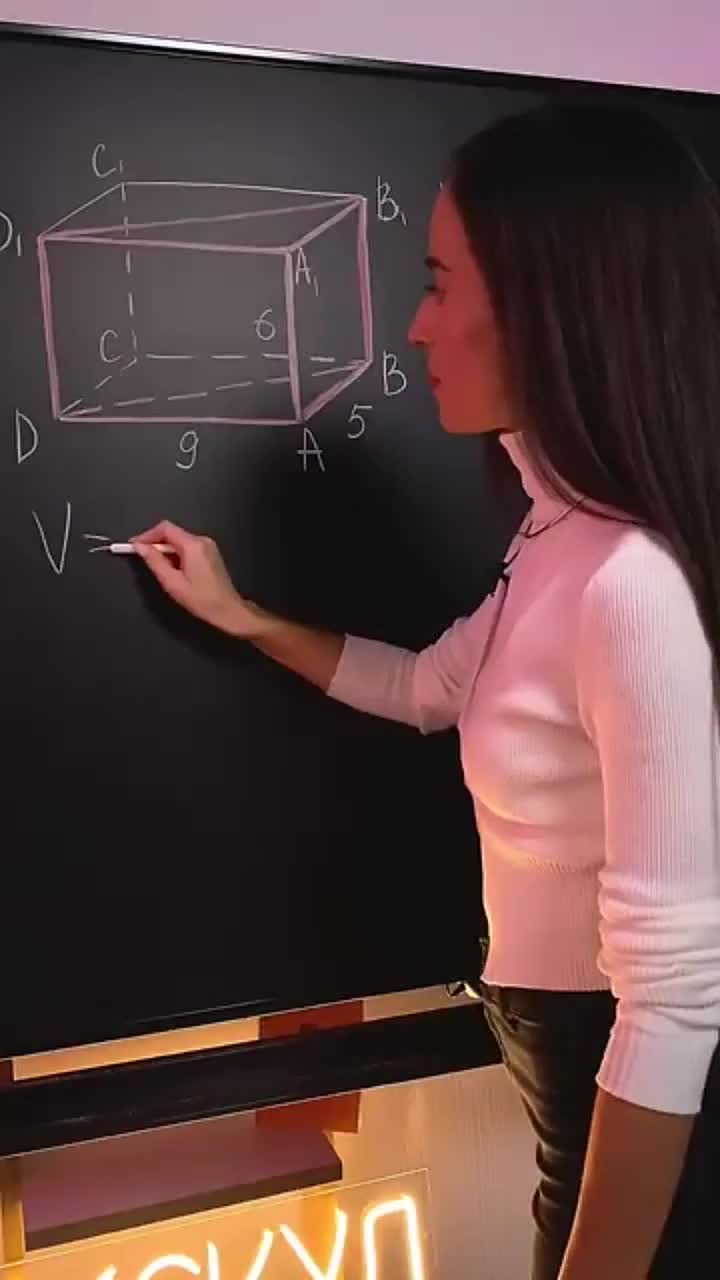 C₁
D₁ B₁
A₁
6
C
B
D 9 A 5
V =
скул